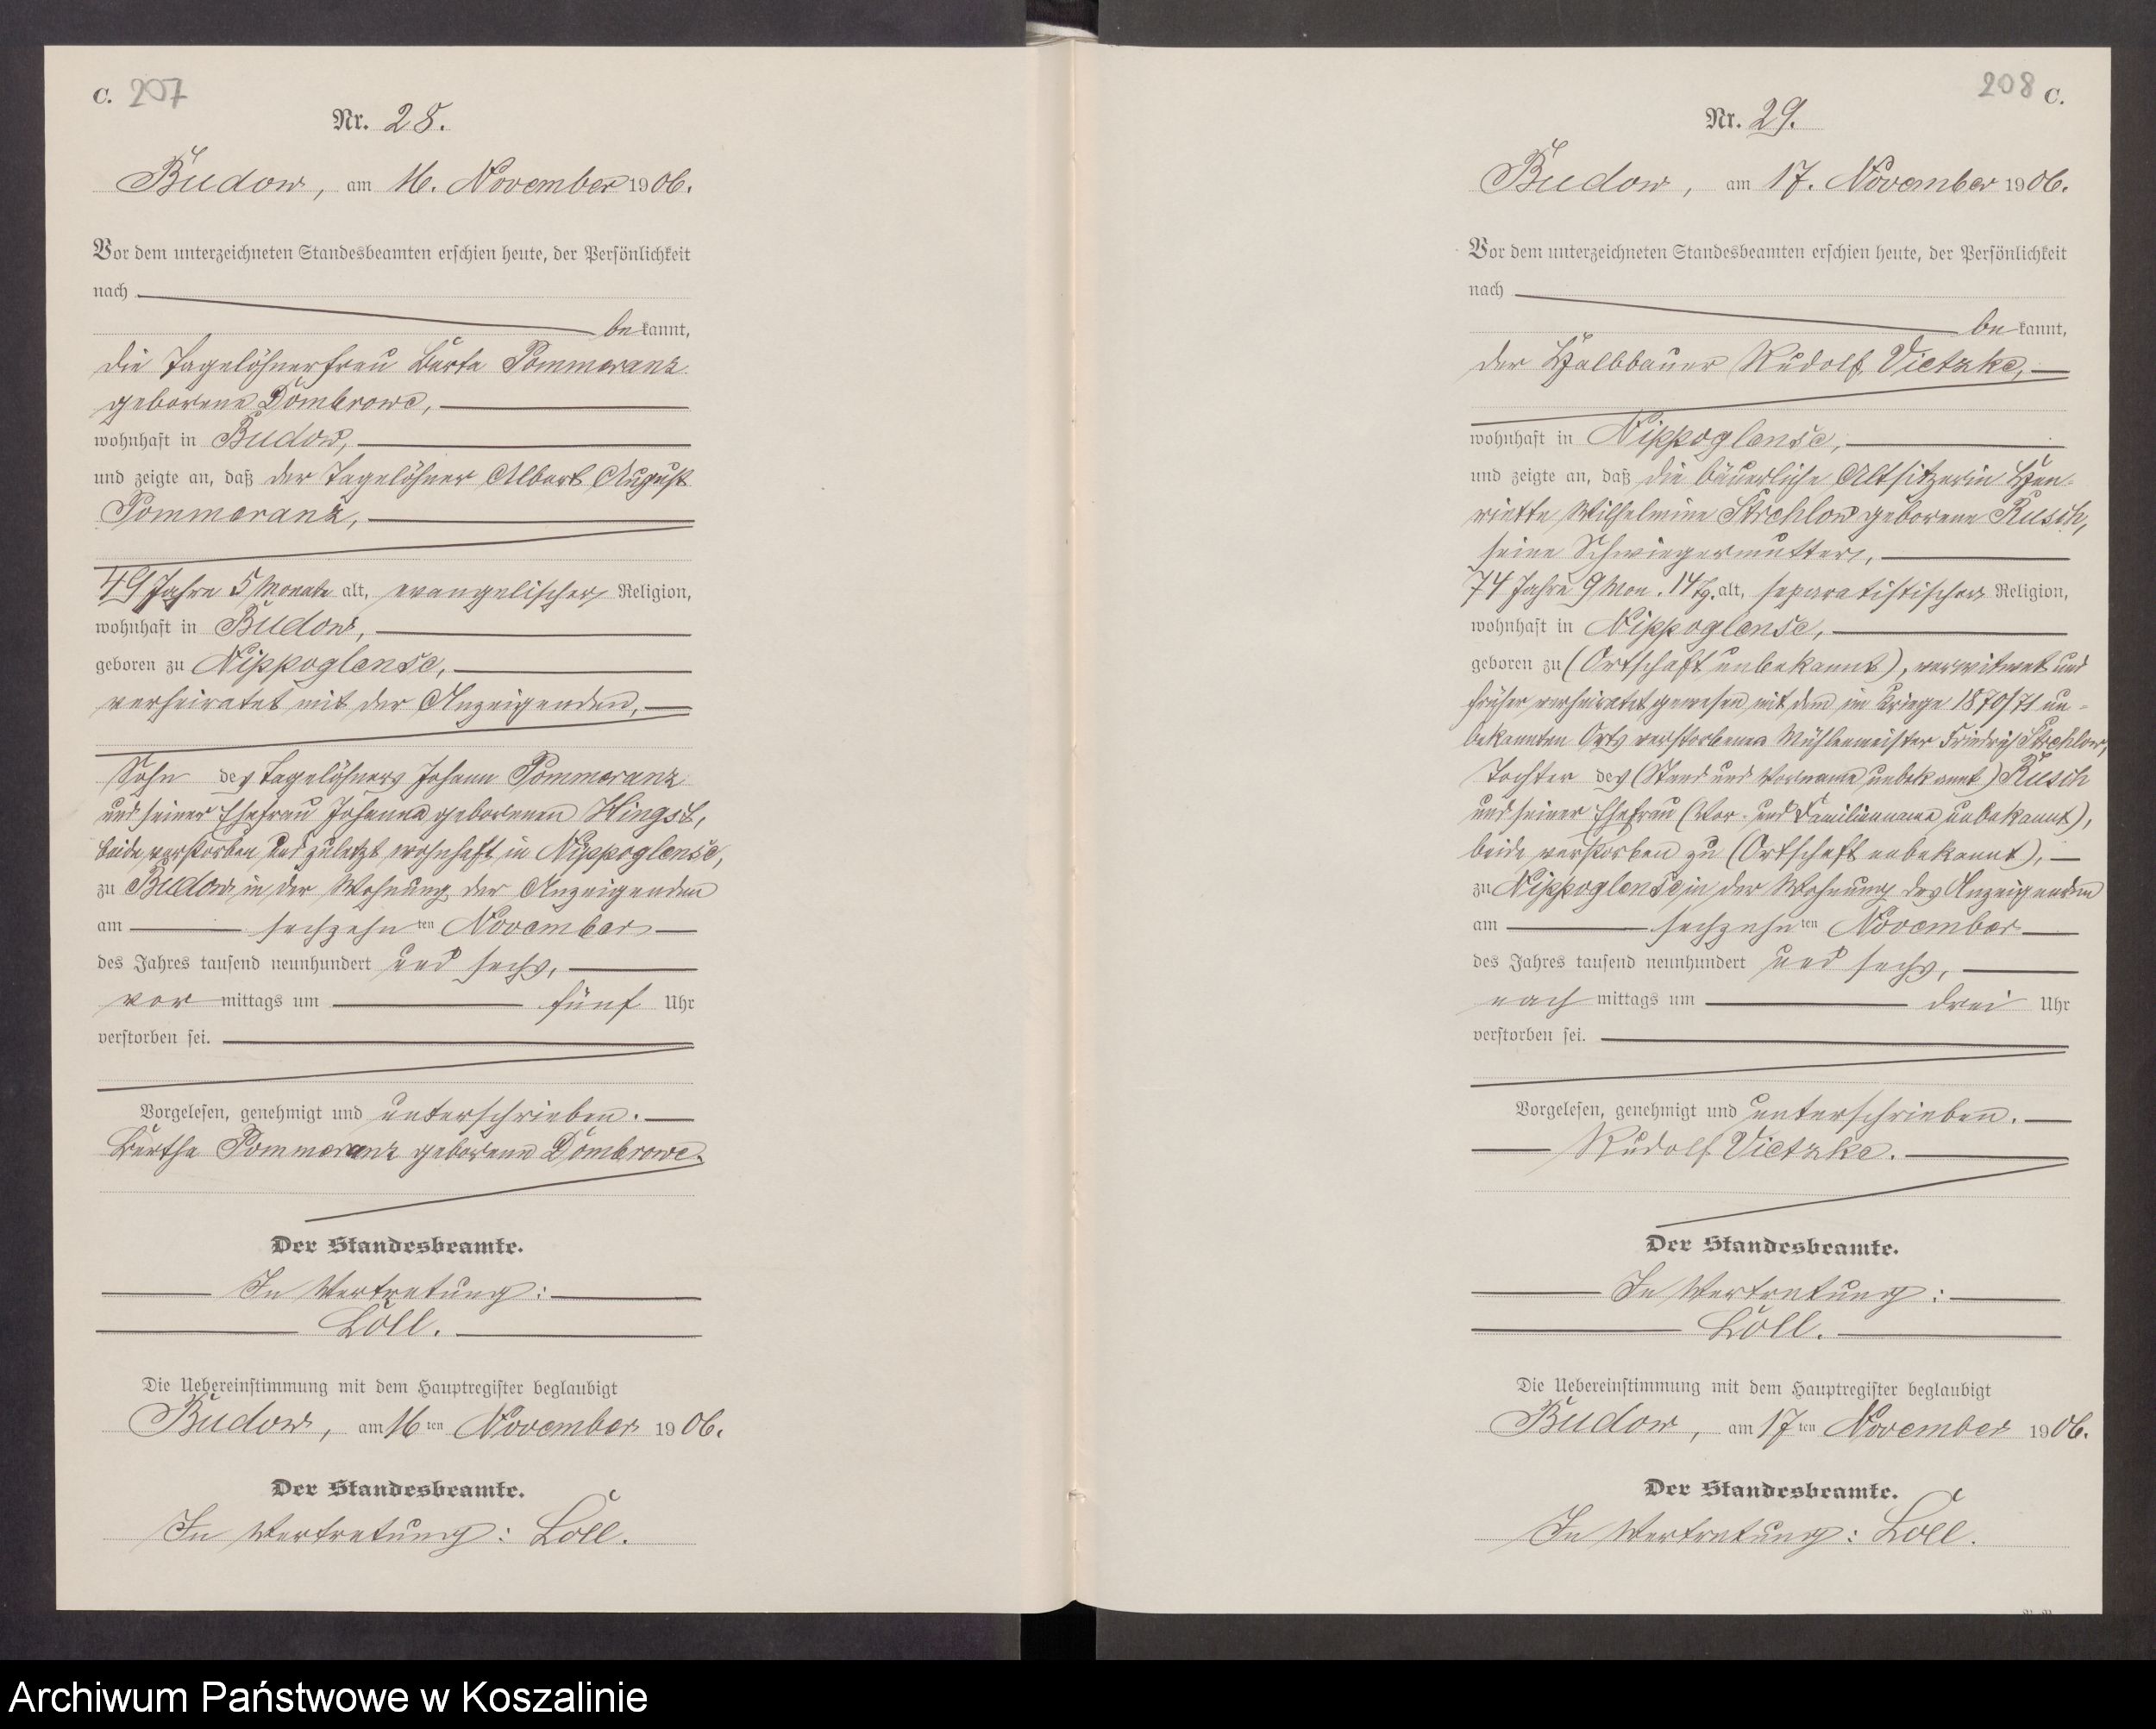 C. 207
Nr. 28.
Budow, am 16. November 1906.
Vor dem unterzeichneten Standesbeamten erschien heute, der Persönlichkeit
nach
bekannt,
die Tagelöhnerfrau Berta Pommeranz
geborene Dombrowe,
wohnhaft in Budow,
und zeigte an, daß der Tagelöhner Albert August
Pommeranz,
49 Jahre 5 Monate alt, evangelischer Religion,
wohnhaft in Budow,
geboren zu Nippoglense,
verheiratet mit der Anzeigenden,
Sohn des Tagelöhners Johann Pommeranz
und seiner Ehefrau Johanna geborenen Hingst,
beide verstorben und zuletzt wohnhaft in Nippoglense,
zu Budow in der Wohnung der Anzeigenden
am sechzehnten November
des Jahres tausend neunhundert und sechs,
vormittags um fünf Uhr
verstorben sei.
Vorgelesen, genehmigt und unterschrieben.
Bertha Pommeranz geborene Dombrowe.
Der Standesbeamte.
In Vertretung:
Löll.
Die Uebereinstimmung mit dem Hauptregister beglaubigt
Budow, am 16ten November 1906.
Der Standesbeamte.
In Vertretung: Löll.
208 C.
Nr. 29.
Budow, am 17. November 1906.
Vor dem unterzeichneten Standesbeamten erschien heute, der Persönlichkeit
nach
bekannt,
der Halbbauer Rudolf Vietzke,
wohnhaft in Nippoglense,
und zeigte an, daß die bäuerliche Altsitzerin Hen-
riette Wilhelmine Strehlow geborene Rusch,
seine Schwiegermutter,
74 Jahre 9 Mon. 14 Tg. alt, separatistischer Religion,
wohnhaft in Nippoglense,
geboren zu (Ortschaft unbekannt), verwitwet und
früher verheiratet gewesen mit dem im Kriege 1870/71 un-
bekannten Orts verstorbenen Mühlenmeister Friedrich Strehlow,
Tochter des (Stand und Vorname unbekannt) Rusch
und seiner Ehefrau (Vor- und Familienname unbekannt),
beide verstorben zu (Ortschaft unbekannt),
zu Nippoglense in der Wohnung des Anzeigenden
am sechzehnten November
des Jahres tausend neunhundert und sechs,
nachmittags um drei Uhr
verstorben sei.
Vorgelesen, genehmigt und unterschrieben.
Rudolf Vietzke.
Der Standesbeamte.
In Vertretung:
Löll.
Die Uebereinstimmung mit dem Hauptregister beglaubigt
Budow, am 17ten November 1906.
Der Standesbeamte.
In Vertretung: Löll.
Archiwum Państwowe w Koszalinie